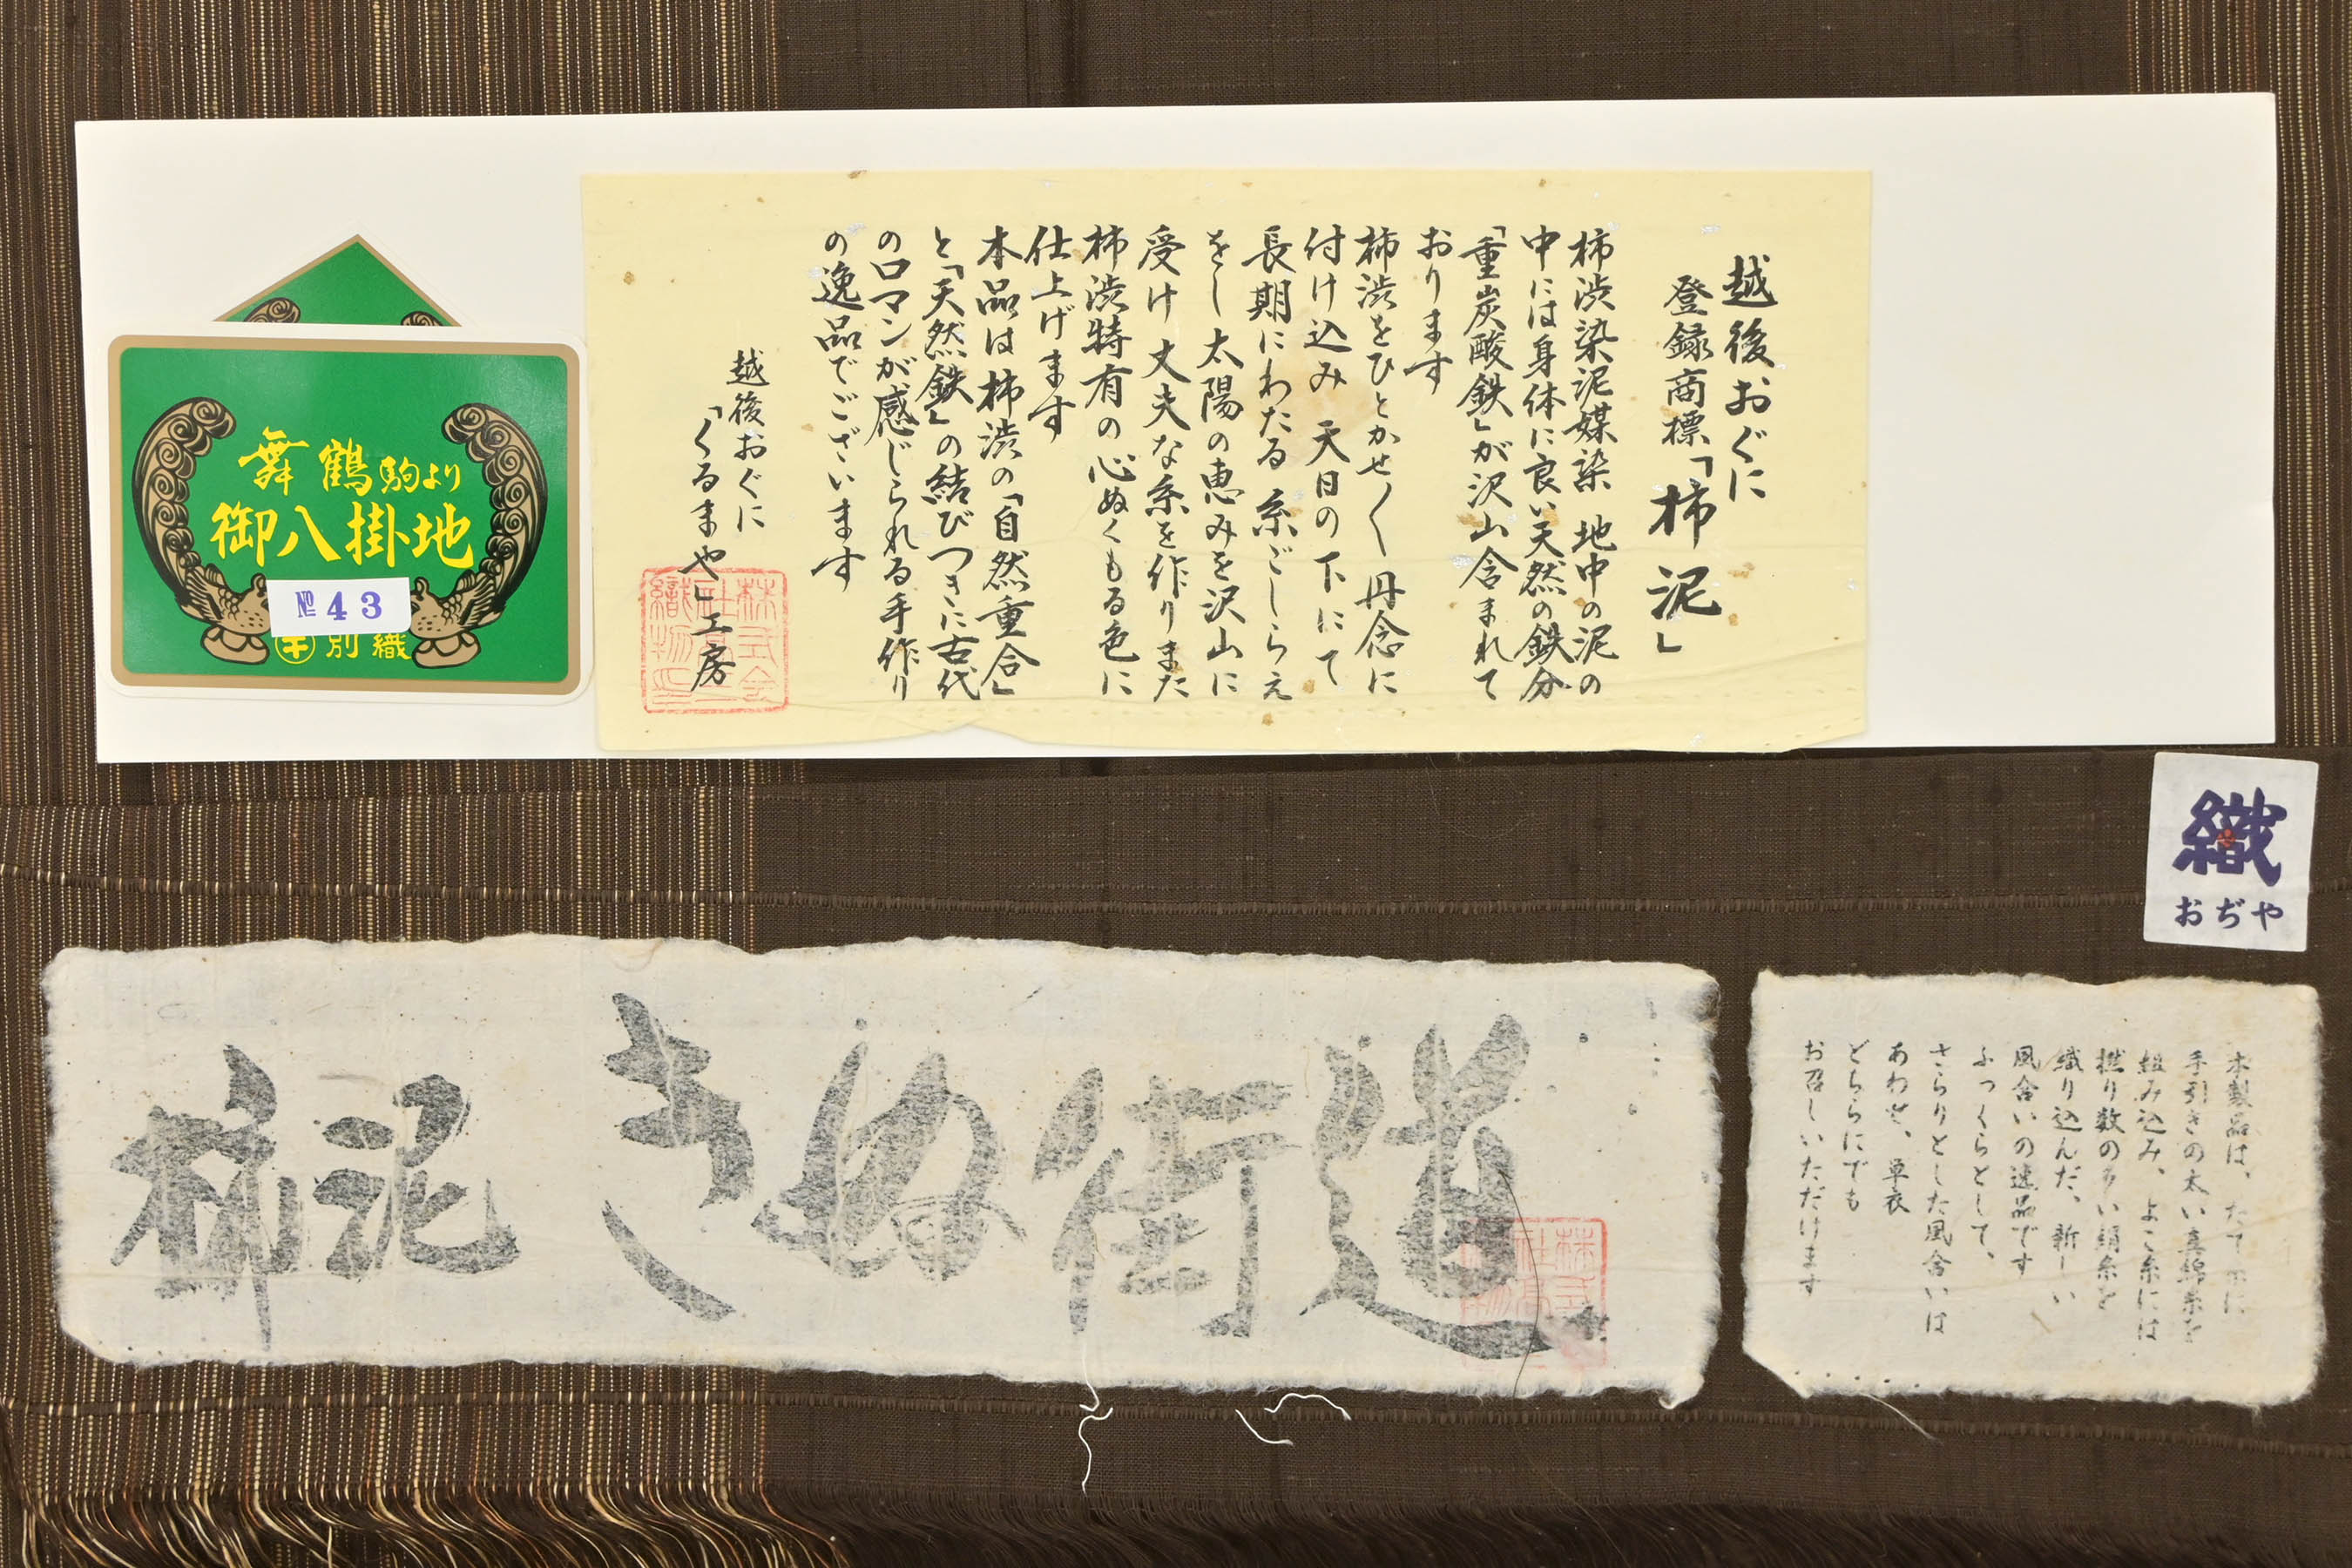 越後おぐに
登録商標「柿泥」
柿渋染泥媒染 地中の泥の
中には身体に良い天然の鉄分
「重炭酸鉄」が沢山含まれて
おります
柿渋をひとかせ〱丹念に
付け込み 天日の下にて
長期にわたる糸ごしらえ
をし 太陽の恵みを沢山に
受け丈夫な糸を作りまた
柿渋特有の心ぬくもる色に
仕上げます
本品は柿渋の「自然重合」
と「天然鉄」の結びつきに古代
のロマンが感じられる手作り
の逸品でございます
越後おぐに
「くるまや」工房
舞鶴駒より
御八掛地
№43
別織
織
おぢや
柿泥 きぬ街道
本製品は、たて
手引きの太い真綿糸を
組み込み、よこ糸には
撚り数の多い絹糸を
織り込んだ、新しい
風合いの逸品です
ふっくらとして、
さらりとした風合いは
あわせ、単衣
どちらにでも
お召しいただけます